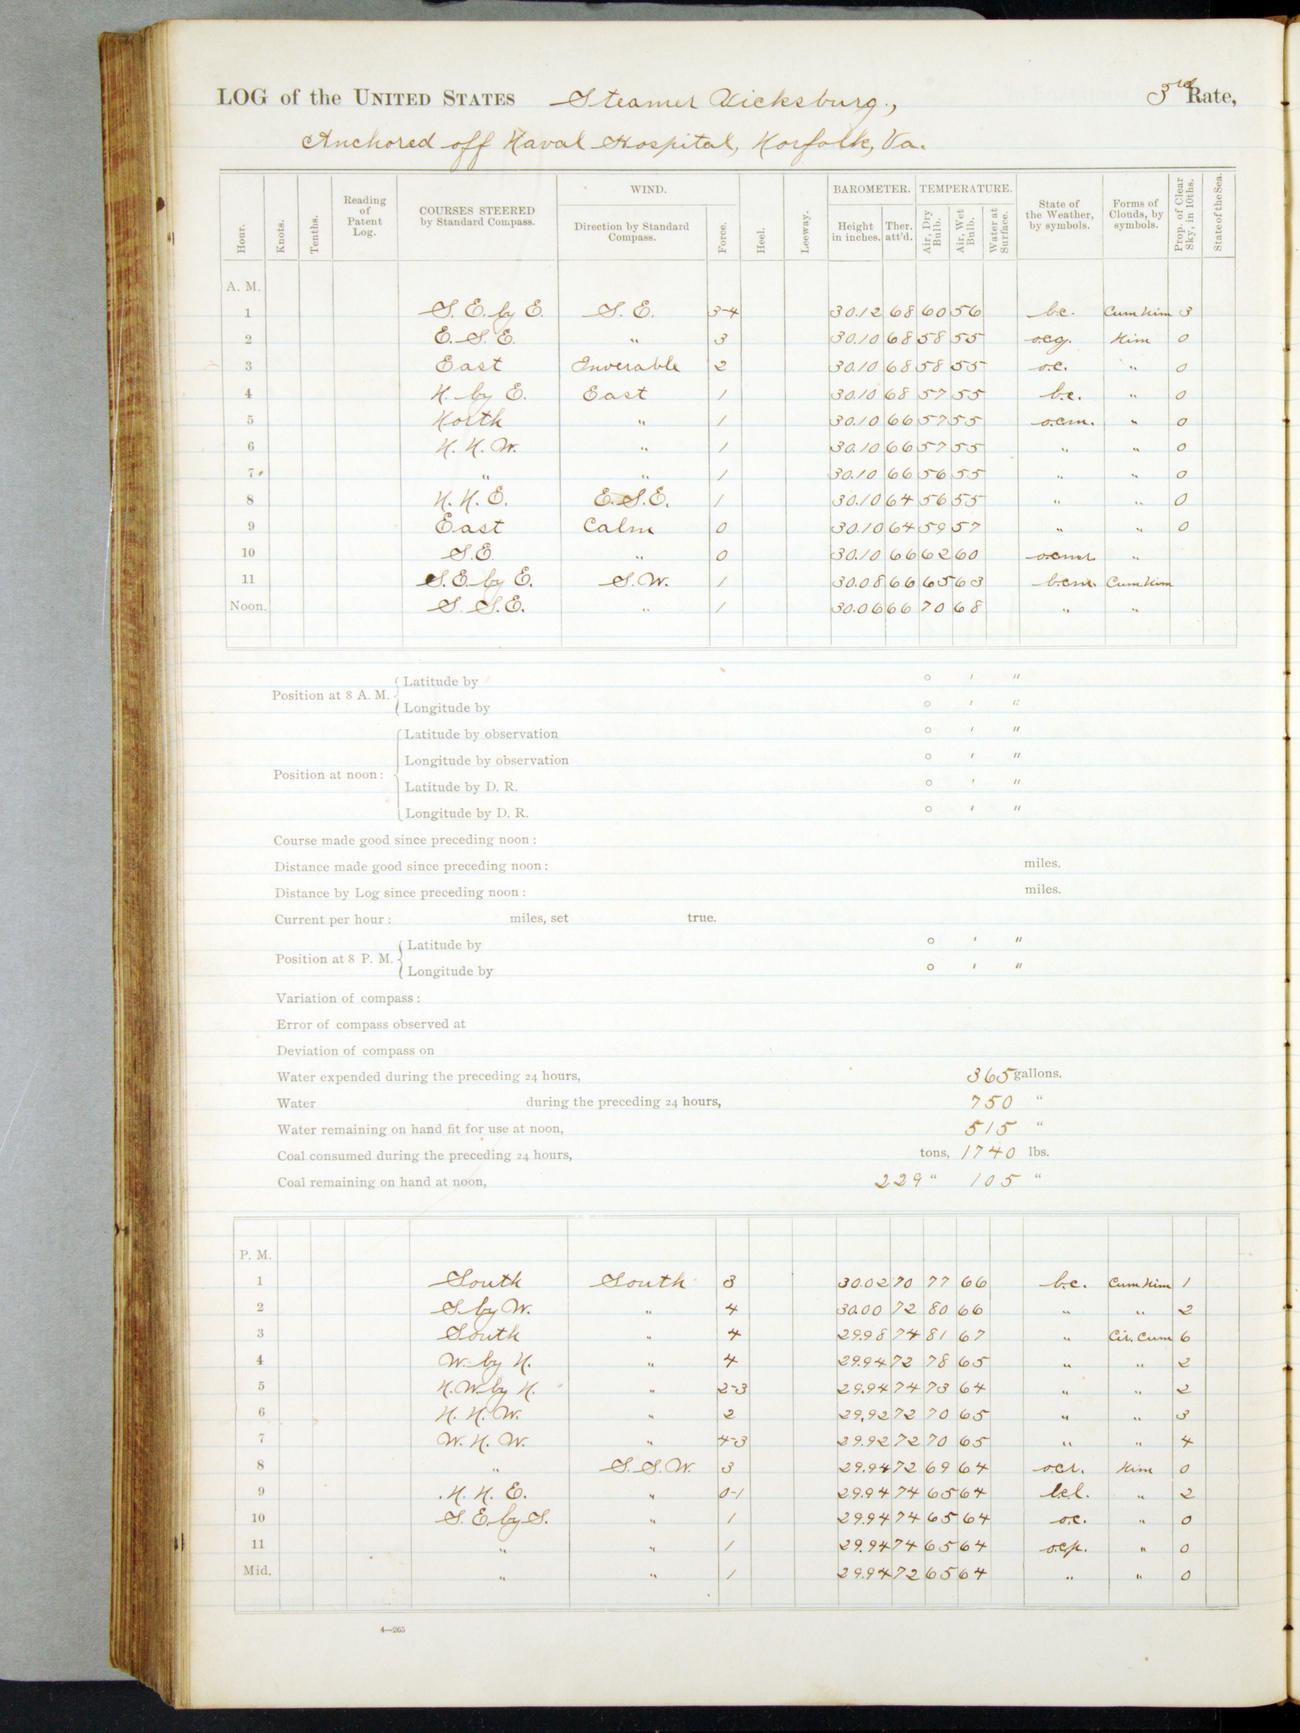 LOG of the UNITED STATES Steamer Vicksburg, 3rd Rate,
Anchored off Naval Hospital, Norfolk, Va.
Hour. Knots. Tenths. Reading of Patent Log. COURSES STEERED by Standard Compass. WIND. Direction by Standard Compass. Force. Heel. Leeway. BAROMETER. Height in inches. Ther. att'd. TEMPERATURE. Air, Dry Bulb. Air, Wet Bulb. Water at Surface. State of the Weather, by symbols. Forms of Clouds, by symbols. Prop. of Clear Sky, in 10ths. State of the Sea.
A. M.
1 S. E. by E. S. E. 3-4 30.12 68 60 56 b.c. Cum Nim 3
2 E. S. E. " 3 30.10 68 58 55 o.c.g. Nim 0
3 East Inverable 2 30.10 68 58 55 o.c. " 0
4 N. by E. East 1 30.10 68 57 55 b.c. " 0
5 North " 1 30.10 66 57 55 o.c.m. " 0
6 N. N. W. " 1 30.10 66 57 55 " " 0
7 " " 1 30.10 66 56 55 " " 0
8 N. N. E. E. S. E. 1 30.10 64 56 55 " " 0
9 East Calm 0 30.10 64 59 57 " " 0
10 S.E. " 0 30.10 66 62 60 o.c.m.r. "
11 S. E. by E. S. W. 1 30.08 66 65 63 b.c.m. Cum Nim
Noon. S. S. E. " 1 30.06 66 70 68 " "
Position at 8 A. M. Latitude by ° ′ ″
Longitude by ° ′ ″
Position at noon: Latitude by observation ° ′ ″
Longitude by observation ° ′ ″
Latitude by D. R. ° ′ ″
Longitude by D. R. ° ′ ″
Course made good since preceding noon:
Distance made good since preceding noon: miles.
Distance by Log since preceding noon: miles.
Current per hour: miles, set true.
Position at 8 P. M. Latitude by ° ′ ″
Longitude by ° ′ ″
Variation of compass:
Error of compass observed at
Deviation of compass on
Water expended during the preceding 24 hours, 365 gallons.
Water during the preceding 24 hours, 750 "
Water remaining on hand fit for use at noon, 515 "
Coal consumed during the preceding 24 hours, tons, 1740 lbs.
Coal remaining on hand at noon, 229 " 105 "
P. M.
1 South South 3 30.02 70 77 66 b.c. Cum Nim 1
2 S. by W. " 4 30.00 72 80 66 " " 2
3 South " 4 29.98 74 81 67 " Cir. Cum 6
4 W. by N. " 4 29.94 72 78 65 " " 2
5 N. W. by N. " 2-3 29.94 74 73 64 " " 2
6 N. N. W. " 2 29.92 72 70 65 " " 3
7 W. N. W. " 4-3 29.92 72 70 65 " " 4
8 " S. S. W. 3 29.94 72 69 64 o.c.r. Nim 0
9 N. N. E. " 0-1 29.94 74 65 64 b.c.l. " 2
10 S. E. by S. " 1 29.94 74 65 64 o.c. " 0
11 " " 1 29.94 74 65 64 o.c.p. " 0
Mid. " " 1 29.94 72 65 64 " " 0
4—265